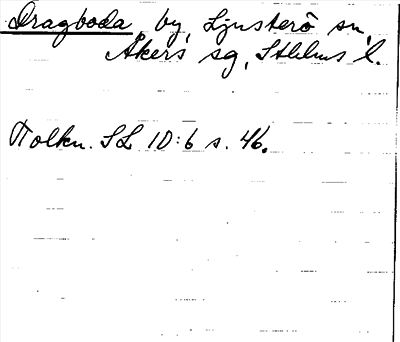 Dragboda, by, Ljusterö sn,
Åkers sg, Sthlms l.
Tolkn. SL 10:6 s. 46.